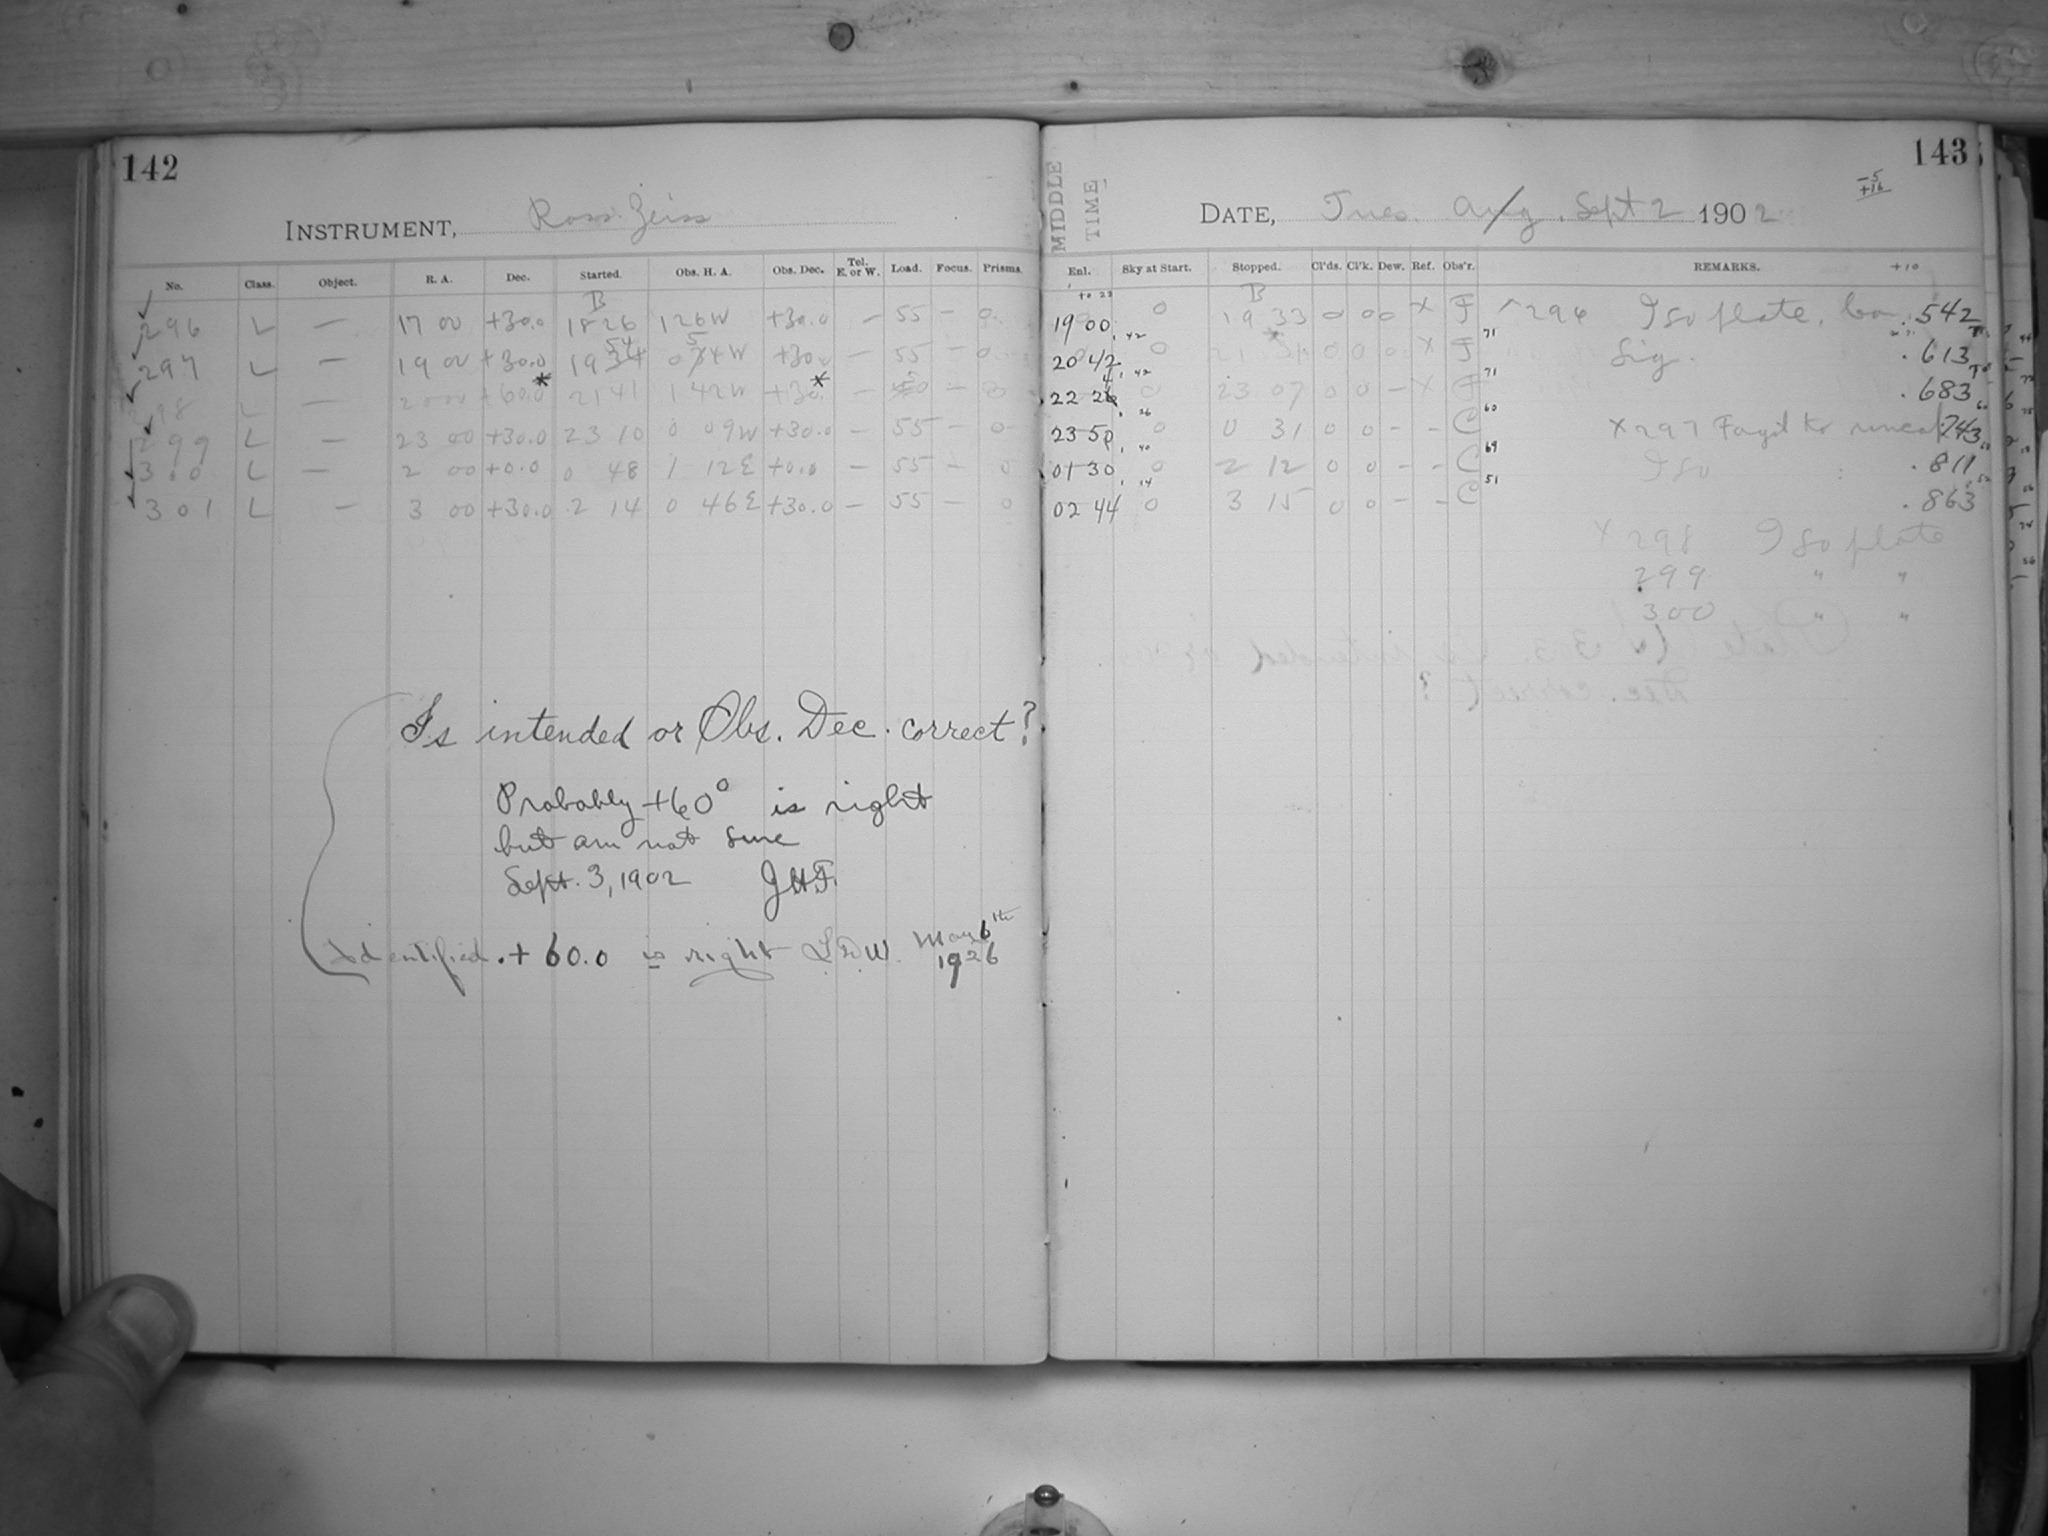 142
INSTRUMENT, Ross Zeiss
No. Class. Object. R. A. Dec. Started. Obs. H. A. Obs. Dec. Tel. E. or W. Load. Focus. Prisms.
B
296 L — 17 00 +30.0 18 26 1 26 W +30.0 — 55 — 0
297 L — 19 00 +30.0 19 54 0 54 W +30.0 — 55 — 0
298 L — +60.0* 21 41 1 42 W +30.* — — 0
299 L — 23 00 +30.0 23 10 0 09 W +30.0 — 55 — 0
300 L — 2 00 +0.0 0 48 1 12 E +0.0 — 55 — 0
301 L — 3 00 +30.0 2 14 0 46 E +30.0 — 55 — 0
Is intended or Obs. Dec. correct?
Probably +60° is right
but am not sure
Sept. 3, 1902 JHF.
Identified. +60.0 is right L.D.W. May 6th
1926
143
-5
+16
MIDDLE TIME
DATE, Tues. Aug. Sept 2 1902
Enl. Sky at Start. Stopped. Cl'ds. Cl'k. Dew. Ref. Obs'r. REMARKS. +10
B
19 00 0 19 33 0 0 0 x F 296 Iso plate. .542
20 42 0 21 0 0 0 x F Sig. .613
22 24 0 23 07 0 0 — x F .683
23 50 0 0 31 0 0 - - C x 297 Forgot to .743
01 30 0 2 12 0 0 - - C Iso .811
02 44 0 3 15 0 0 - - C .863
x 298 Iso plate
299 " "
300 " "